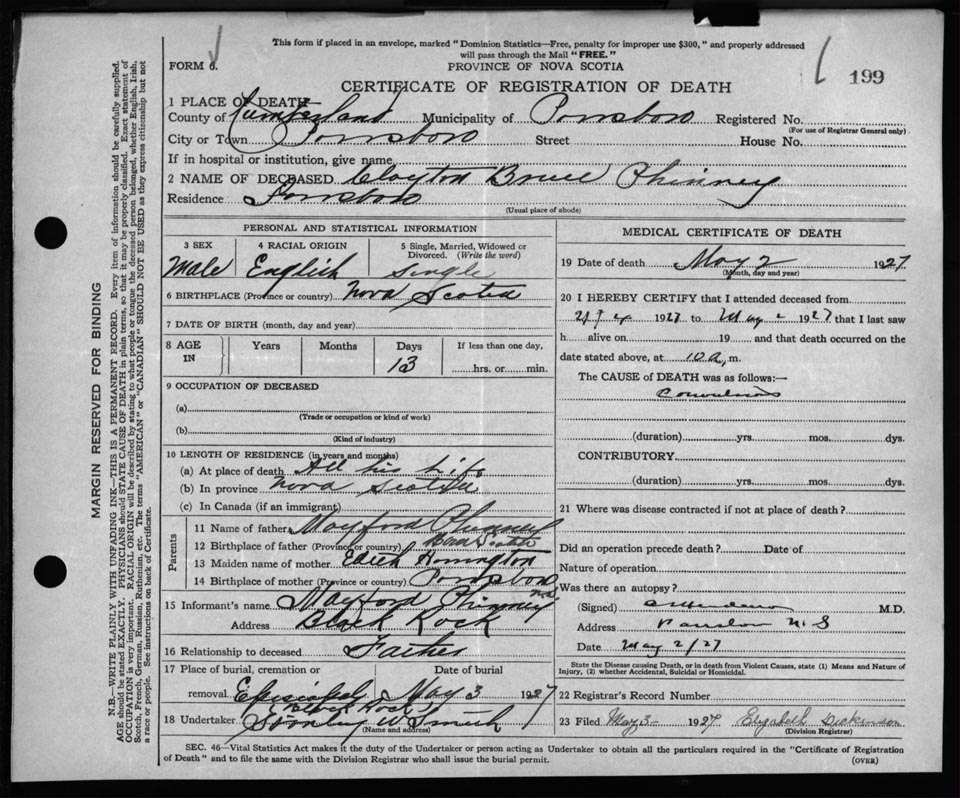 This form if placed in an envelope, marked "Dominion Statistics—Free, penalty for improper use $300," and properly addressed
will pass through the Mail "FREE."
FORM 6.
PROVINCE OF NOVA SCOTIA
199
CERTIFICATE OF REGISTRATION OF DEATH
1 PLACE OF DEATH—
County of Cumberland Municipality of Parrsboro Registered No.
(For use of Registrar General only)
City or Town Parrsboro Street House No.
If in hospital or institution, give name
2 NAME OF DECEASED Clayton Bruce Phinney
Residence Parrsboro
(Usual place of abode)
PERSONAL AND STATISTICAL INFORMATION
3 SEX 4 RACIAL ORIGIN 5 Single, Married, Widowed or
Divorced. (Write the word)
Male English Single
6 BIRTHPLACE (Province or country) Nova Scotia
7 DATE OF BIRTH (month, day and year)
8 AGE IN Years Months Days If less than one day,
13 hrs. or min.
9 OCCUPATION OF DECEASED
(a)
(Trade or occupation or kind of work)
(b)
(Kind of industry)
10 LENGTH OF RESIDENCE (in years and months)
(a) At place of death All his Life
(b) In province Nova Scotia
(c) In Canada (if an immigrant)
Parents
11 Name of father Mayford Phinney
12 Birthplace of father (Province or country) Nova Scotia
13 Maiden name of mother Edith
14 Birthplace of mother (Province or country) Parrsboro N.S.
15 Informant's name Mayford Phinney
Address Black Rock
16 Relationship to deceased Father
17 Place of burial, cremation or Date of burial
removal Episcopal May 3 1927
(Black Rock)
18 Undertaker Stanley W Smith
(Name and address)
MEDICAL CERTIFICATE OF DEATH
19 Date of death May 2 1927
(Month, day and year)
20 I HEREBY CERTIFY that I attended deceased from
1927 to May 2 1927 that I last saw
h alive on 19 and that death occurred on the
date stated above, at 10 a. m.
The CAUSE of DEATH was as follows:—
Convulsions
(duration) yrs. mos. dys.
CONTRIBUTORY
(duration) yrs. mos. dys.
21 Where was disease contracted if not at place of death?
Did an operation precede death? Date of
Nature of operation
Was there an autopsy?
(Signed) M.D.
Address N.S
Date May 2/27
State the Disease causing Death, or in death from Violent Causes, state (1) Means and Nature of
Injury, (2) whether Accidental, Suicidal or Homicidal.
22 Registrar's Record Number
23 Filed May 3 1927 Elizabeth Dickinson
(Division Registrar)
SEC. 46—Vital Statistics Act makes it the duty of the Undertaker or person acting as Undertaker to obtain all the particulars required in the "Certificate of Registration
of Death" and to file the same with the Division Registrar who shall issue the burial permit.
(OVER)
MARGIN RESERVED FOR BINDING
N.B.—WRITE PLAINLY WITH UNFADING INK—THIS IS A PERMANENT RECORD. Every item of information should be carefully supplied.
AGE should be stated EXACTLY. PHYSICIANS should STATE CAUSE OF DEATH in plain terms, so that it may be properly classified. Exact statement of
OCCUPATION is very important. RACIAL ORIGIN will be described by stating to what people or tongue the deceased person belonged, whether English, Irish,
Scotch, French, German, Russian, Ruthenian, etc. The terms "AMERICAN" or "CANADIAN" SHOULD NOT BE USED as they express citizenship but not
a race or people. See instructions on back of Certificate.